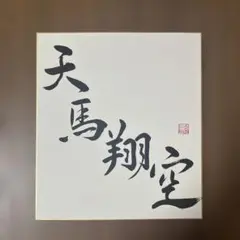 天馬翔空